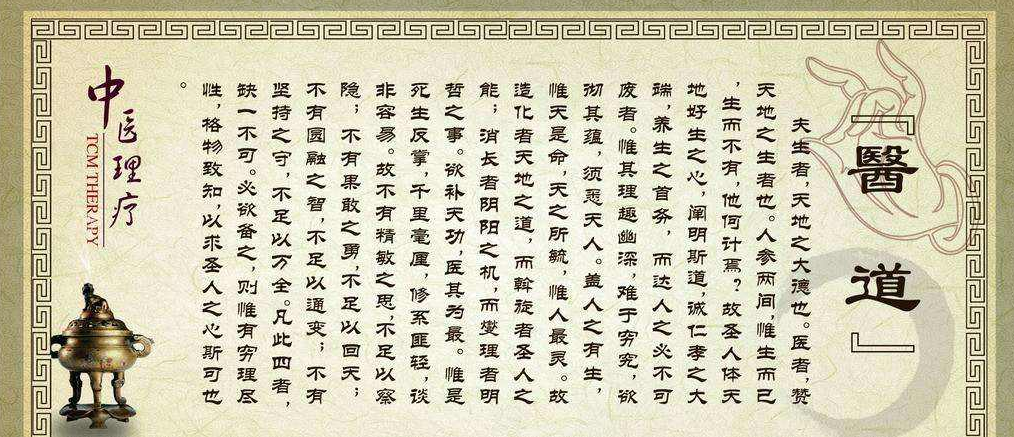 『醫道』
夫生者，天地之大德也。医者，赞
天地之生者也。人参两间，惟生而已
，生而不有，他何计焉？故圣人体天
地好生之心，阐明斯道，诚仁孝之大
端，养生之首务，而达人之必不可
废者。惟其理趣幽深，难于穷究，欲
彻其蕴，须悉天人。盖人之有生，
惟天是命，天之所毓，惟人最灵。故
造化者天地之道，而斡旋者圣人之
能；消长者阴阳之机，而燮理者明
哲之事。欲补天功，医其为最。惟是
死生反掌，千里毫厘，修系匪轻，谈
非容易。故不有精敏之思，不足以察
隐；不有果敢之勇，不足以回天；
不有圆融之智，不足以通变；不有
坚持之守，不足以万全。凡此四者，
缺一不可。必欲备之，则惟有穷理尽
性，格物致知，以求圣人之心斯可也
。
中医理疗
TCM THERAPY